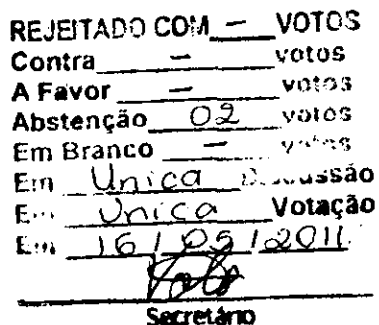 REJEITADO COM — VOTOS
Contra — votos
A Favor — votos
Abstenção 02 votos
Em Branco — votos
Em Unica Discussão
Em Unica Votação
Em 16/05/2011
Secretário